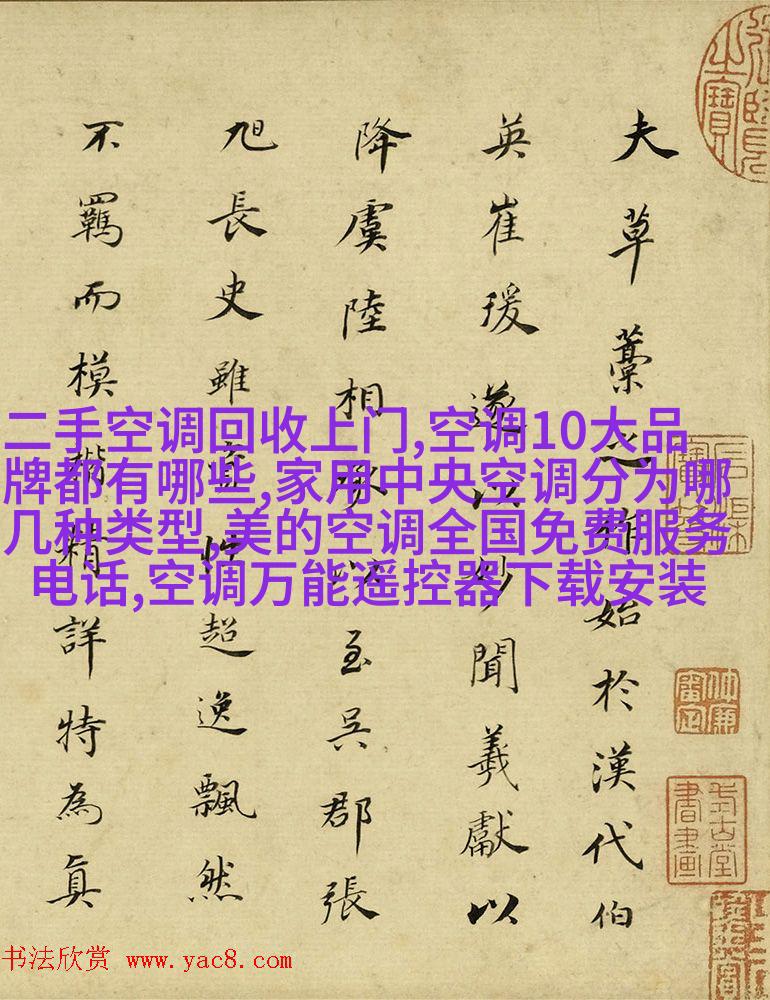 夫草藁之作始於漢代伯
英崔瑗遂以妙聞羲獻以
降虞陸相承以至吳郡張
旭長史雖姿性超逸飄然
不羈而模楷精詳特為真
二手空调回收上门,空调10大品
牌都有哪些,家用中央空调分为哪
几种类型,美的空调全国免费服务
电话,空调万能遥控器下载安装
书法欣赏 www.yac8.com